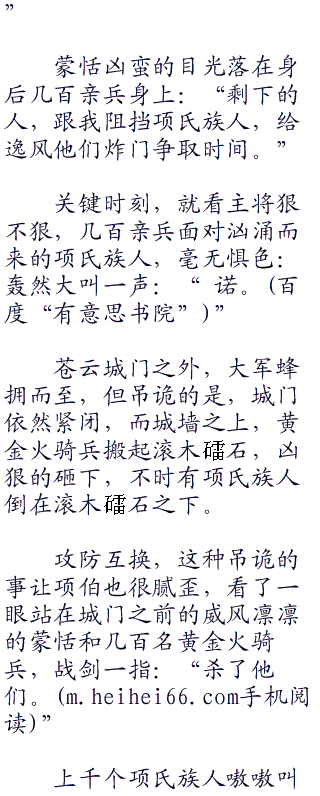 ”
蒙恬凶蛮的目光落在身
后几百亲兵身上：“剩下的
人，跟我阻挡项氏族人，给
逸风他们炸门争取时间。”
关键时刻，就看主将狠
不狠，几百亲兵面对汹涌而
来的项氏族人，毫无惧色：
轰然大叫一声：“ 诺。(百
度“有意思书院”)”
苍云城门之外，大军蜂
拥而至，但吊诡的是，城门
依然紧闭，而城墙之上，黄
金火骑兵搬起滚木礌石，凶
狠的砸下，不时有项氏族人
倒在滚木礌石之下。
攻防互换，这种吊诡的
事让项伯也很腻歪，看了一
眼站在城门之前的威风凛凛
的蒙恬和几百名黄金火骑
兵，战剑一指：“杀了他
们。(m.heihei66.com手机阅
读)”
上千个项氏族人嗷嗷叫